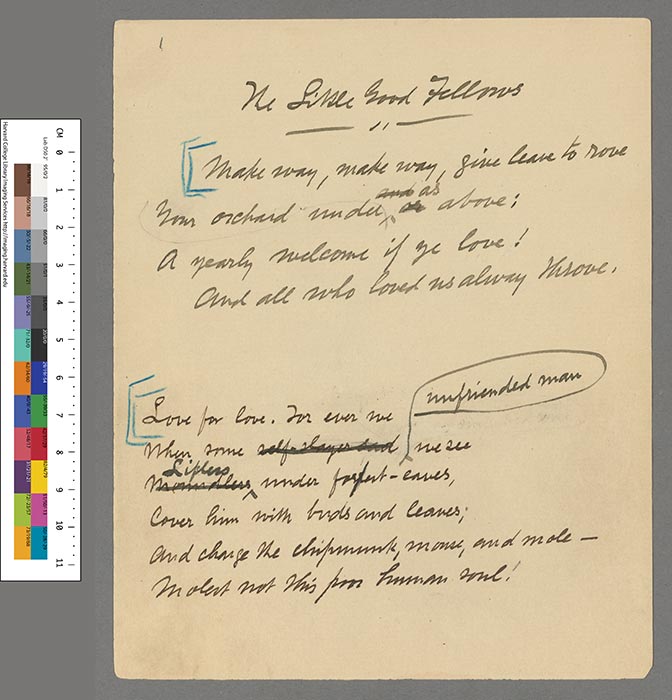 1
The Little Good Fellows
Make way, make way, give leave to rove
and as
Your orchard under or above;
A yearly welcome if ye love!
And all who loved us alway throve.
unfriended man
Love for love. For ever we
When some self-slayer dead we see
Lifeless
under forest-eaves,
Cover him with buds and leaves;
And charge the chipmunk, mouse, and mole—
Molest not this poor human soul!
CM 0 1 2 3 4 5 6 7 8 9 10 11
Harvard College Library Imaging Services http://imaging.harvard.edu